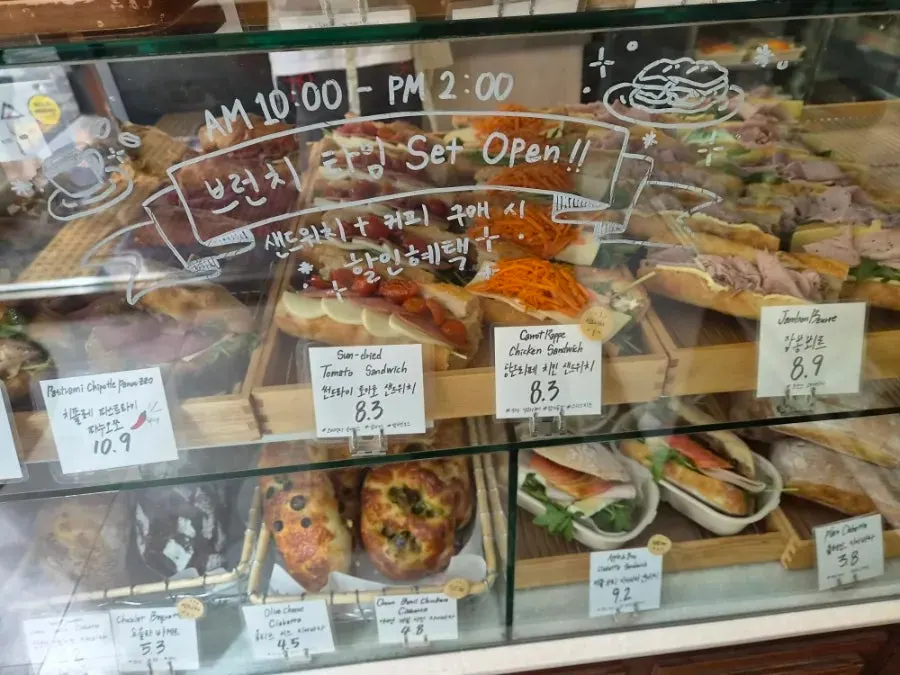 AM 10:00 - PM 2:00
브런치 타임 Set Open!!
샌드위치 + 커피 구매 시
할인혜택
Pastrami Chipotle Panuozzo
치폴레 파스트라미
파누오쪼
10.9
Sun-dried
Tomato Sandwich
썬드라이 토마토 샌드위치
8.3
Carrot Rappe
Chicken Sandwich
당근라페 치킨 샌드위치
8.3
Jambon Beurre
잠봉뵈르
8.9
5.3
Olive Cheese
Ciabatta
올리브 치즈 치아바타
4.5
Ciabatta
4.8
Ciabatta Sandwich
9.2
Plain Ciabatta
플레인 치아바타
3.8